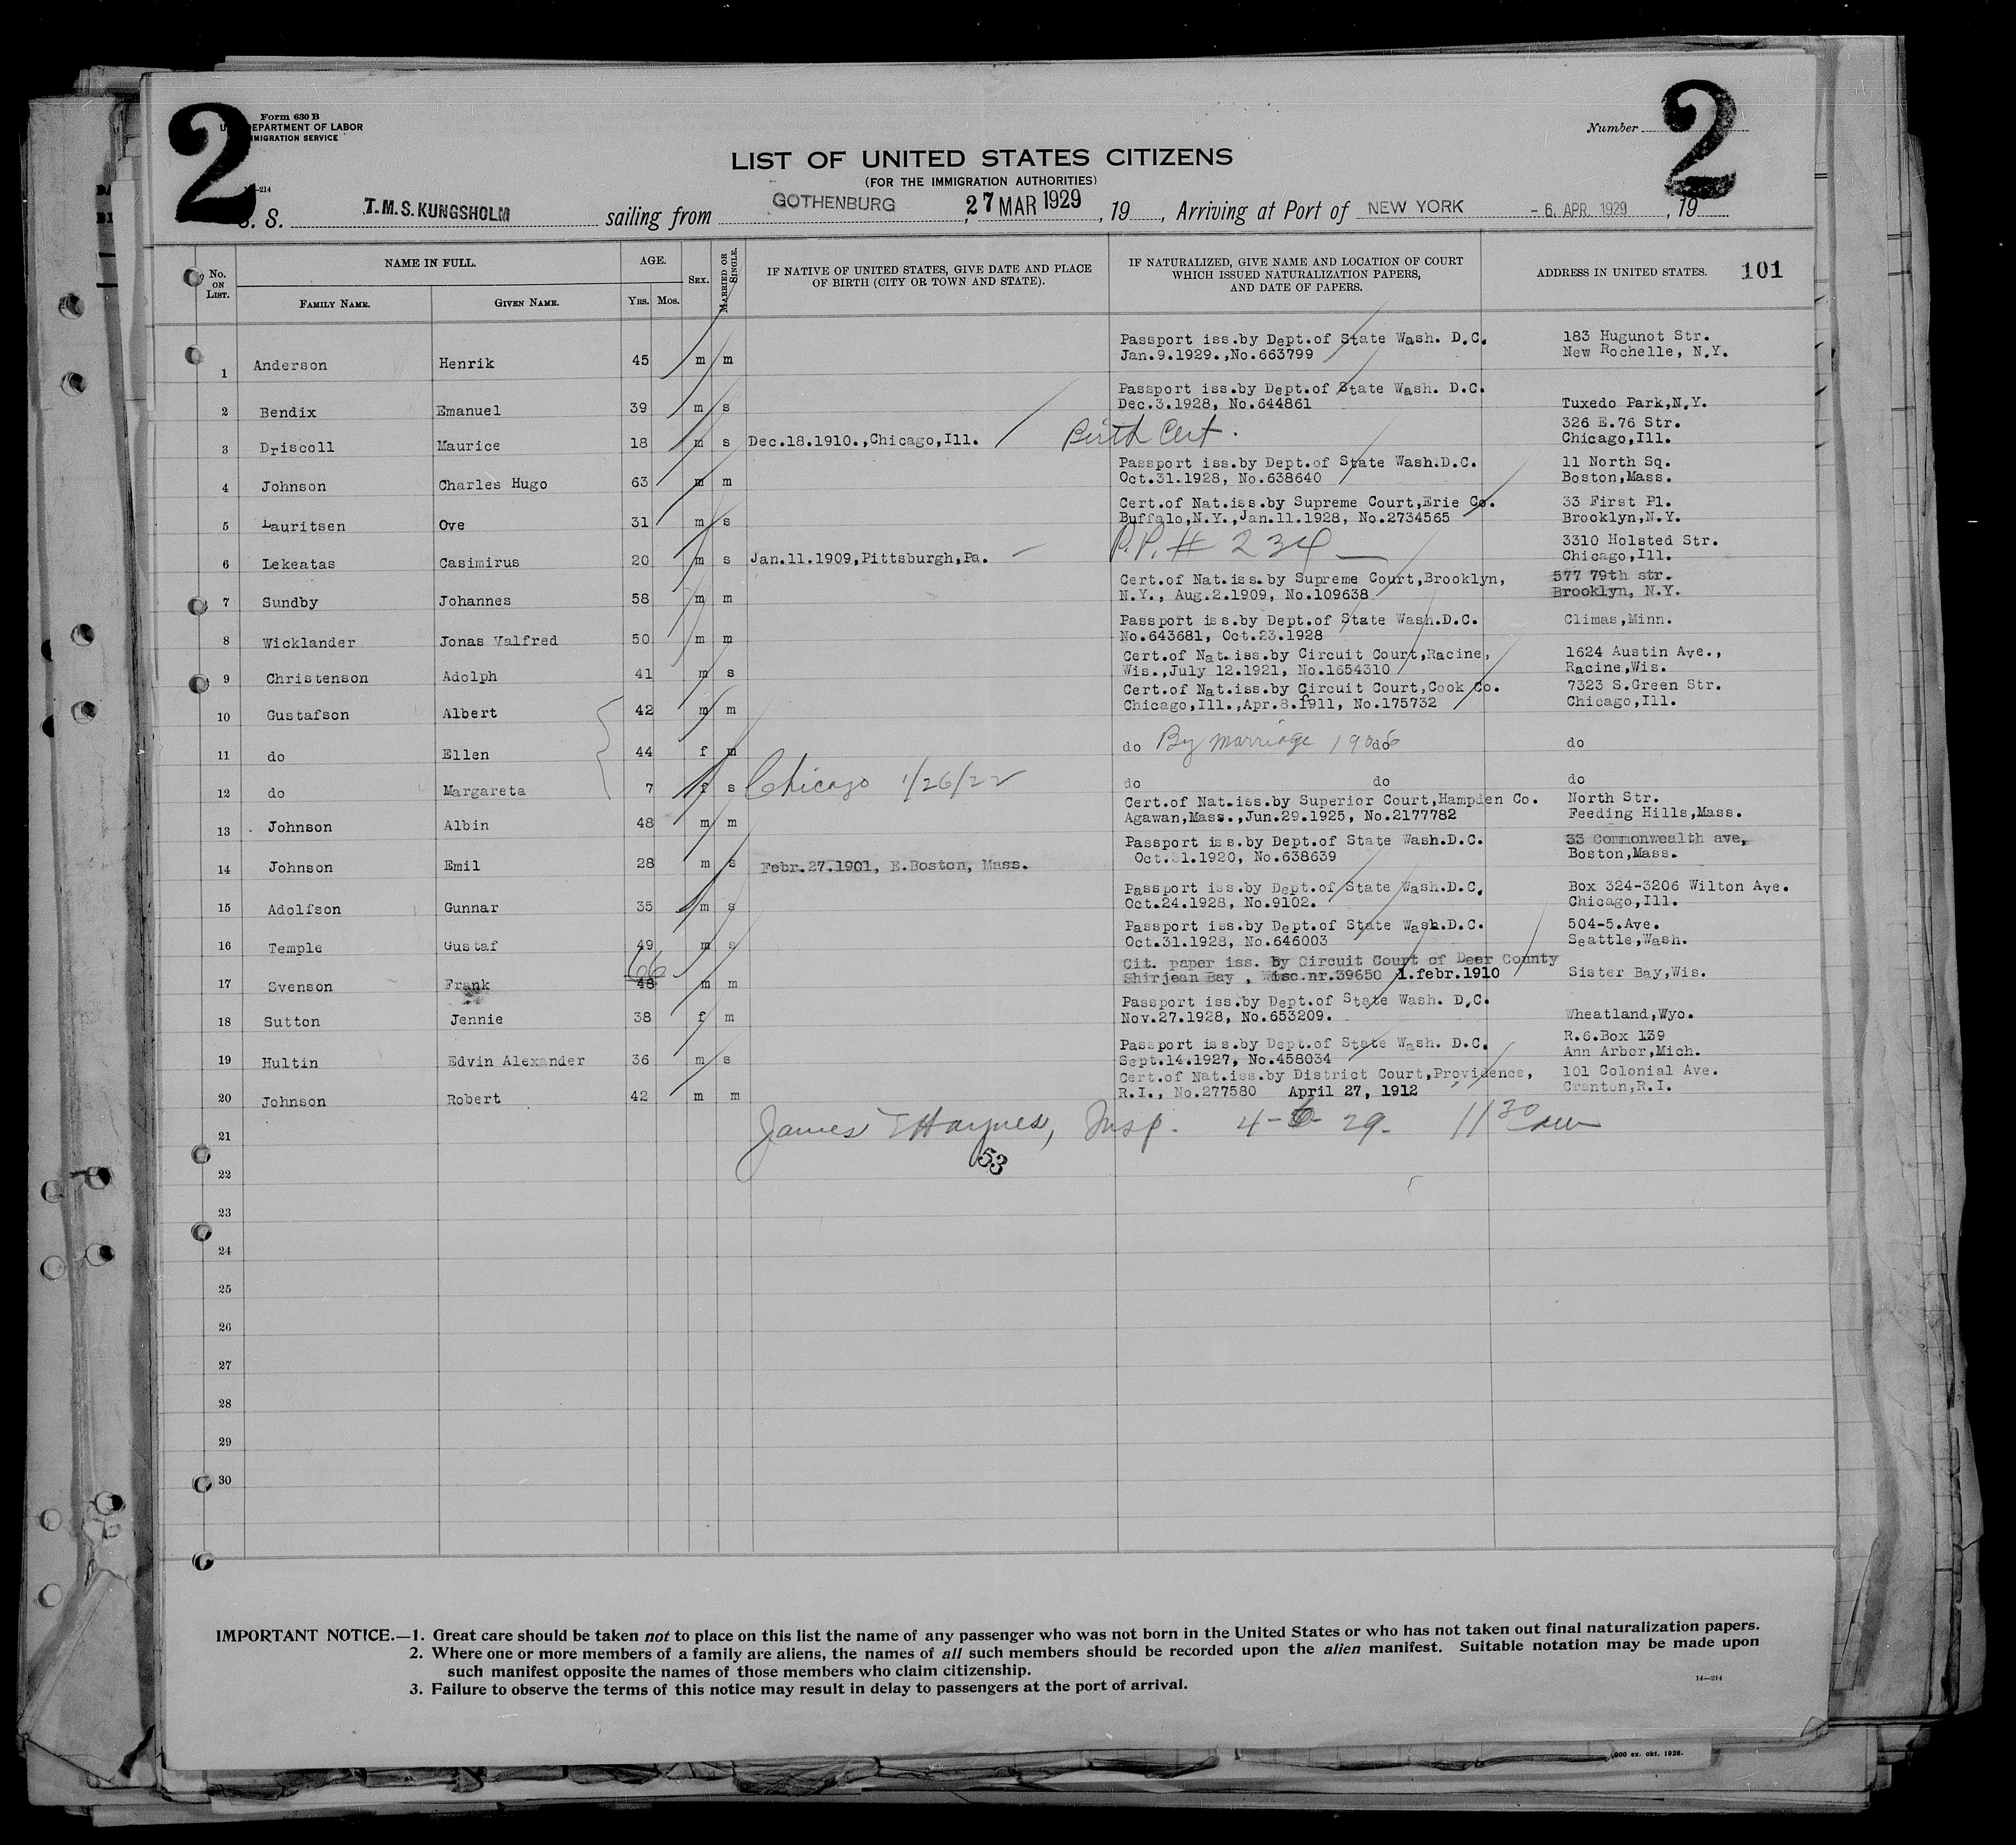 2
2
Form 630 B
U. DEPARTMENT OF LABOR
MIGRATION SERVICE
Number
—214
LIST OF UNITED STATES CITIZENS
(FOR THE IMMIGRATION AUTHORITIES)
S. S. T.M.S. KUNGSHOLM sailing from GOTHENBURG, 27 MAR 1929, 19 , Arriving at Port of NEW YORK -6. APR. 1929, 19
No. ON LIST.
NAME IN FULL.
FAMILY NAME.
GIVEN NAME.
AGE.
YRS.
MOS.
SEX.
MARRIED OR SINGLE.
IF NATIVE OF UNITED STATES, GIVE DATE AND PLACE
OF BIRTH (CITY OR TOWN AND STATE).
IF NATURALIZED, GIVE NAME AND LOCATION OF COURT
WHICH ISSUED NATURALIZATION PAPERS,
AND DATE OF PAPERS.
ADDRESS IN UNITED STATES. 101
Passport iss.by Dept.of State Wash. D.C. 183 Hugunot Str.
1 Anderson Henrik 45 m m Jan.9.1929.,No.663799 New Rochelle, N.Y.
Passport iss.by Dept.of State Wash. D.C.
2 Bendix Emanuel 39 m s Dec.3.1928, No.644861 Tuxedo Park,N.Y.
326 E.76 Str.
3 Driscoll Maurice 18 m s Dec.18.1910.,Chicago,Ill. Birth Cert. Chicago,Ill.
Passport iss.by Dept.of State Wash.D.C. 11 North Sq.
4 Johnson Charles Hugo 63 m m Oct.31.1928, No.638640 Boston,Mass.
Cert.of Nat.iss.by Supreme Court,Erie Co. 33 First Pl.
5 Lauritsen Ove 31 m s Buffalo,N.Y.,Jan.11.1928, No.2734565 Brooklyn,N.Y.
P.P. # 234 3310 Holsted Str.
6 Lekeatas Casimirus 20 m s Jan.11.1909,Pittsburgh,Pa. Chicago,Ill.
Cert.of Nat.iss.by Supreme Court,Brooklyn, 577 79th str.
7 Sundby Johannes 58 m m N.Y., Aug.2.1909, No.109638 Brooklyn, N.Y.
Passport iss.by Dept.of State Wash.D.C. Climas,Minn.
8 Wicklander Jonas Valfred 50 m m No.643681, Oct.23.1928
Cert.of Nat.iss.by Circuit Court,Racine, 1624 Austin Ave.,
9 Christenson Adolph 41 m s Wis.,July 12.1921, No.1654310 Racine,Wis.
Cert.of Nat.iss.by Circuit Court,Cook Co. 7323 S.Green Str.
10 Gustafson Albert 42 m m Chicago,Ill.,Apr.8.1911, No.175732 Chicago,Ill.
11 do Ellen 44 f m do By marriage 1906 do do
12 do Margareta 7 f s Chicago 1/26/22 do do do
Cert.of Nat.iss.by Superior Court,Hampden Co. North Str.
13 Johnson Albin 48 m m Agawan,Mass.,Jun.29.1925, No.2177782 Feeding Hills,Mass.
Passport iss.by Dept.of State Wash.D.C. 33 Commonwealth ave,
14 Johnson Emil 28 m s Febr.27.1901, E.Boston, Mass. Oct.31.1920, No.638639 Boston,Mass.
Passport iss.by Dept.of State Wash.D.C. Box 324-3206 Wilton Ave.
15 Adolfson Gunnar 35 m s Oct.24.1928, No.9102. Chicago,Ill.
Passport iss.by Dept.of State Wash.D.C. 504-5.Ave.
16 Temple Gustaf 49 m s Oct.31.1928, No.646003 Seattle,Wash.
66 Cit. paper iss. by Circuit Court of Deer County
17 Svenson Frank 48 m m Shirjean Bay , Wisc.nr.39650 1.febr.1910 Sister Bay,Wis.
Passport iss.by Dept.of State Wash. D.C.
18 Sutton Jennie 38 f m Nov.27.1928, No.653209. Wheatland,Wyo.
Passport iss.by Dept.of State Wash. D.C. R.6.Box 139
19 Hultin Edvin Alexander 36 m s Sept.14.1927, No.458034 Ann Arbor,Mich.
Cert.of Nat.iss.by District Court,Providence, 101 Colonial Ave.
20 Johnson Robert 42 m m R.I., No.277580 April 27, 1912 Cranton,R.I.
21 James T Haynes, Insp. 4-6-29. 11 30 am
53
22
23
24
25
26
27
28
29
30
IMPORTANT NOTICE.—1. Great care should be taken not to place on this list the name of any passenger who was not born in the United States or who has not taken out final naturalization papers.
2. Where one or more members of a family are aliens, the names of all such members should be recorded upon the alien manifest. Suitable notation may be made upon
such manifest opposite the names of those members who claim citizenship.
3. Failure to observe the terms of this notice may result in delay to passengers at the port of arrival.
14—214
,000 ex. okt. 1928.